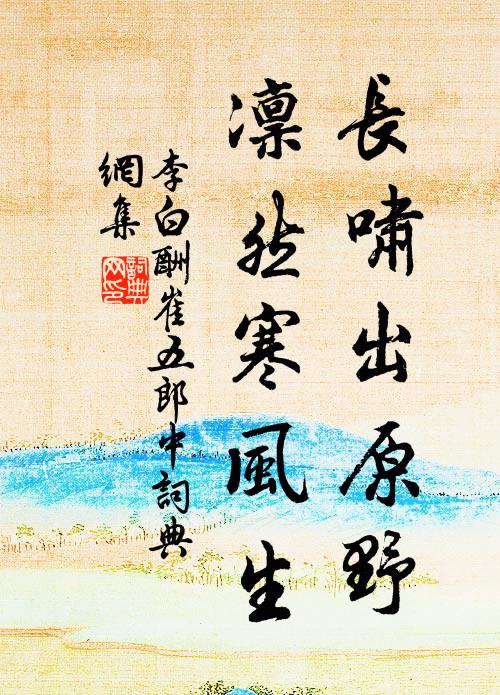 長嘯出原野
凛然寒風生
李白酬崔五郎中詞典
網集
詞典
网印